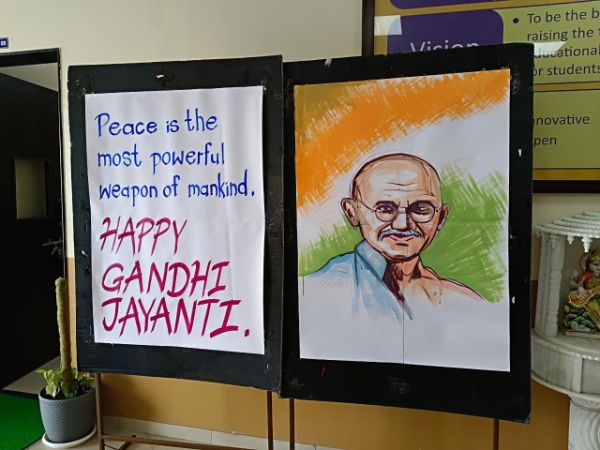 Peace is the
most powerful
weapon of mankind.
HAPPY
GANDHI
JAYANTI.
Vision
• To be the b
raising the
educational
or students
nnovative
pen